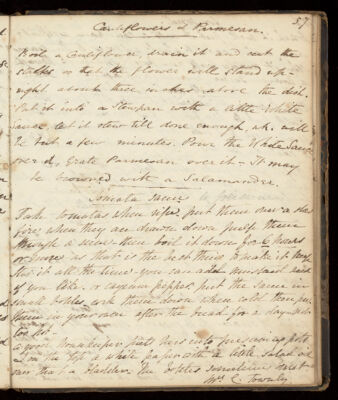 57
Cauliflowers & Parmesan.
Boil a Cauliflower, drain it and cut the
stalks so that the flower will stand up-
right about three inches above the dish.
Put it into a Stewpan with a little White
Sauce let it stew till done enough, wh. will
be but a few minutes. Pour the White Sauce
over it, Grate Parmesan over it - It may
be browned with a Salamander.
Tomata Sauce
Take tomatas when ripe, put them over a slow
fire; when they are drawn down pulp them
through a sieve then boil it down for 6 hours
or more as that is the best thing to make it keep
stir it all the time - you can add mustard seed
if you like, or cayenne pepper put the sauce in
small bottles, cork them down when cold then put
them in your oven after the bread for a day
too hot.
a good housekeeper puts hers into preserving pots
on the top a white paper with a little Salad oil
over that a bladder. The bottles sometimes burst
Mrs. C. Townley